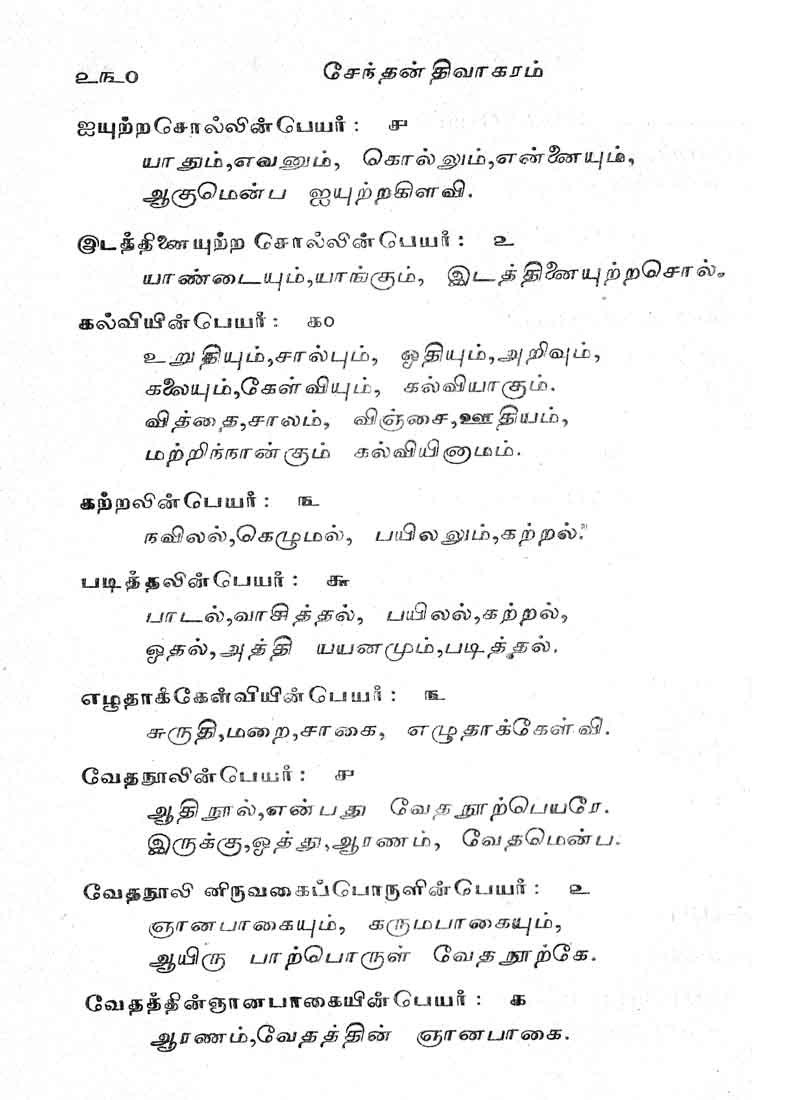 ௨௩௰
சேந்தன் திவாகரம்
ஐயுற்றசொல்லின்பெயர் : ௪
யாதும்,எவனும், கொல்லும்,என்னையும்,
ஆகுமென்ப ஐயுற்றகிளவி.
இடத்தினையுற்ற சொல்லின்பெயர் : ௨
யாண்டையும்,யாங்கும், இடத்தினையுற்றசொல்.
கல்வியின்பெயர் : ௧௦
உறுதியும்,சால்பும், ஓதியும்,அறிவும்,
கலையும்,கேள்வியும், கல்வியாகும்.
வித்தை,சாலம், விஞ்சை,ஊதியம்,
மற்றிந்நான்கும் கல்வியினாமம்.
கற்றலின்பெயர் : ௩
நவிலல்,கெழுமல், பயிலலும்,கற்றல்.
படித்தலின்பெயர் : ௬
பாடல்,வாசித்தல், பயிலல்,கற்றல்,
ஓதல்,அத்தி யயனமும்,படித்தல்.
எழுதாக்கேள்வியின்பெயர் : ௩
சுருதி,மறை,சாகை, எழுதாக்கேள்வி.
வேதநூலின்பெயர் : ௪
ஆதிநூல்,என்பது வேதநூற்பெயரே.
இருக்கு,ஓத்து,ஆரணம், வேதமென்ப.
வேதநூலி னிருவகைப்பொருளின்பெயர் : ௨
ஞானபாகையும், கருமபாகையும்,
ஆயிரு பாற்பொருள் வேதநூற்கே.
வேதத்தின்ஞானபாகையின்பெயர் : ௧
ஆரணம்,வேதத்தின் ஞானபாகை.